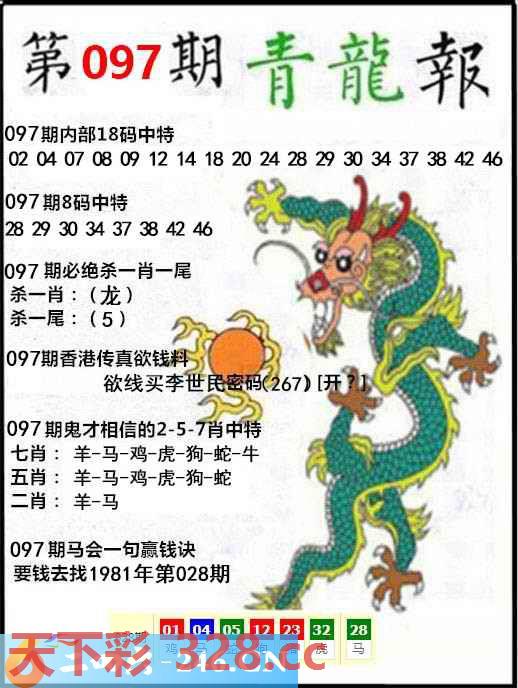 第097期青龍報
097期内部18码中特
02 04 07 08 09 12 14 18 20 24 28 29 30 34 37 38 42 46
097期8码中特
28 29 30 34 37 38 42 46
097期必绝杀一肖一尾
杀一肖：（龙）
杀一尾：（5）
097期香港传真欲钱料
欲线买李世民密码(267)[开?]
097期鬼才相信的2-5-7肖中特
七肖：羊-马-鸡-虎-狗-蛇-牛
五肖：羊-马-鸡-虎-狗-蛇
二肖：羊-马
097期马会一句赢钱诀
要钱去找1981年第028期
01 04 05 12 23 32 28
鸡 虎 马
天下彩-328.cc